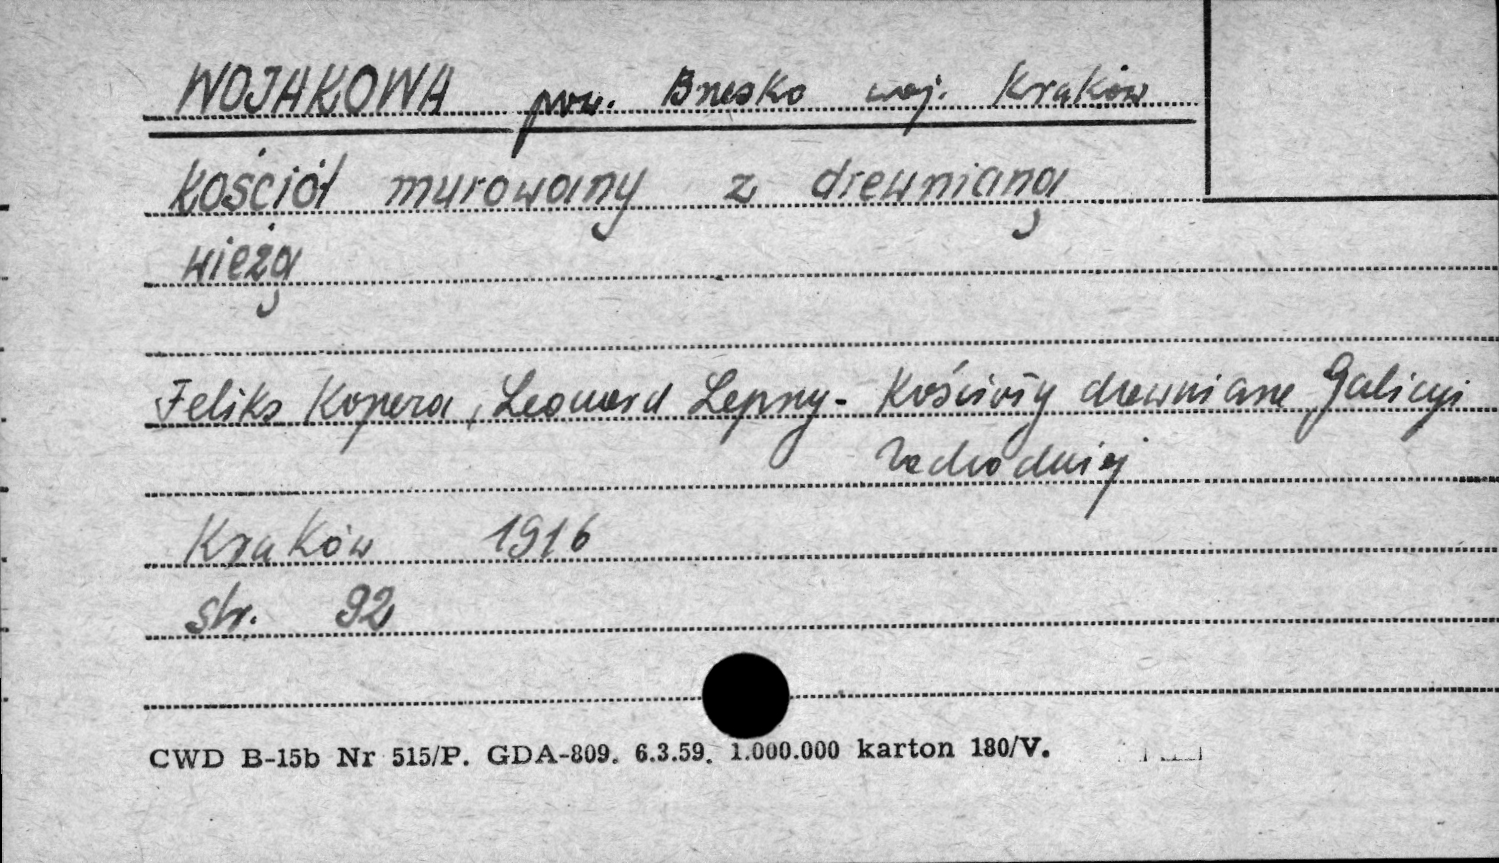 WOJAKOWA pow. Brzesko woj. Kraków
Kościół murowany z drewnianą
wieżą
Feliks Kopera, Leonard Lepszy - Kościoły drewniane Galicyi
Zachodniej
Kraków 1916
str. 92
CWD B-15b Nr 515/P. GDA-809. 6.3.59. 1.000.000 karton 180/V.